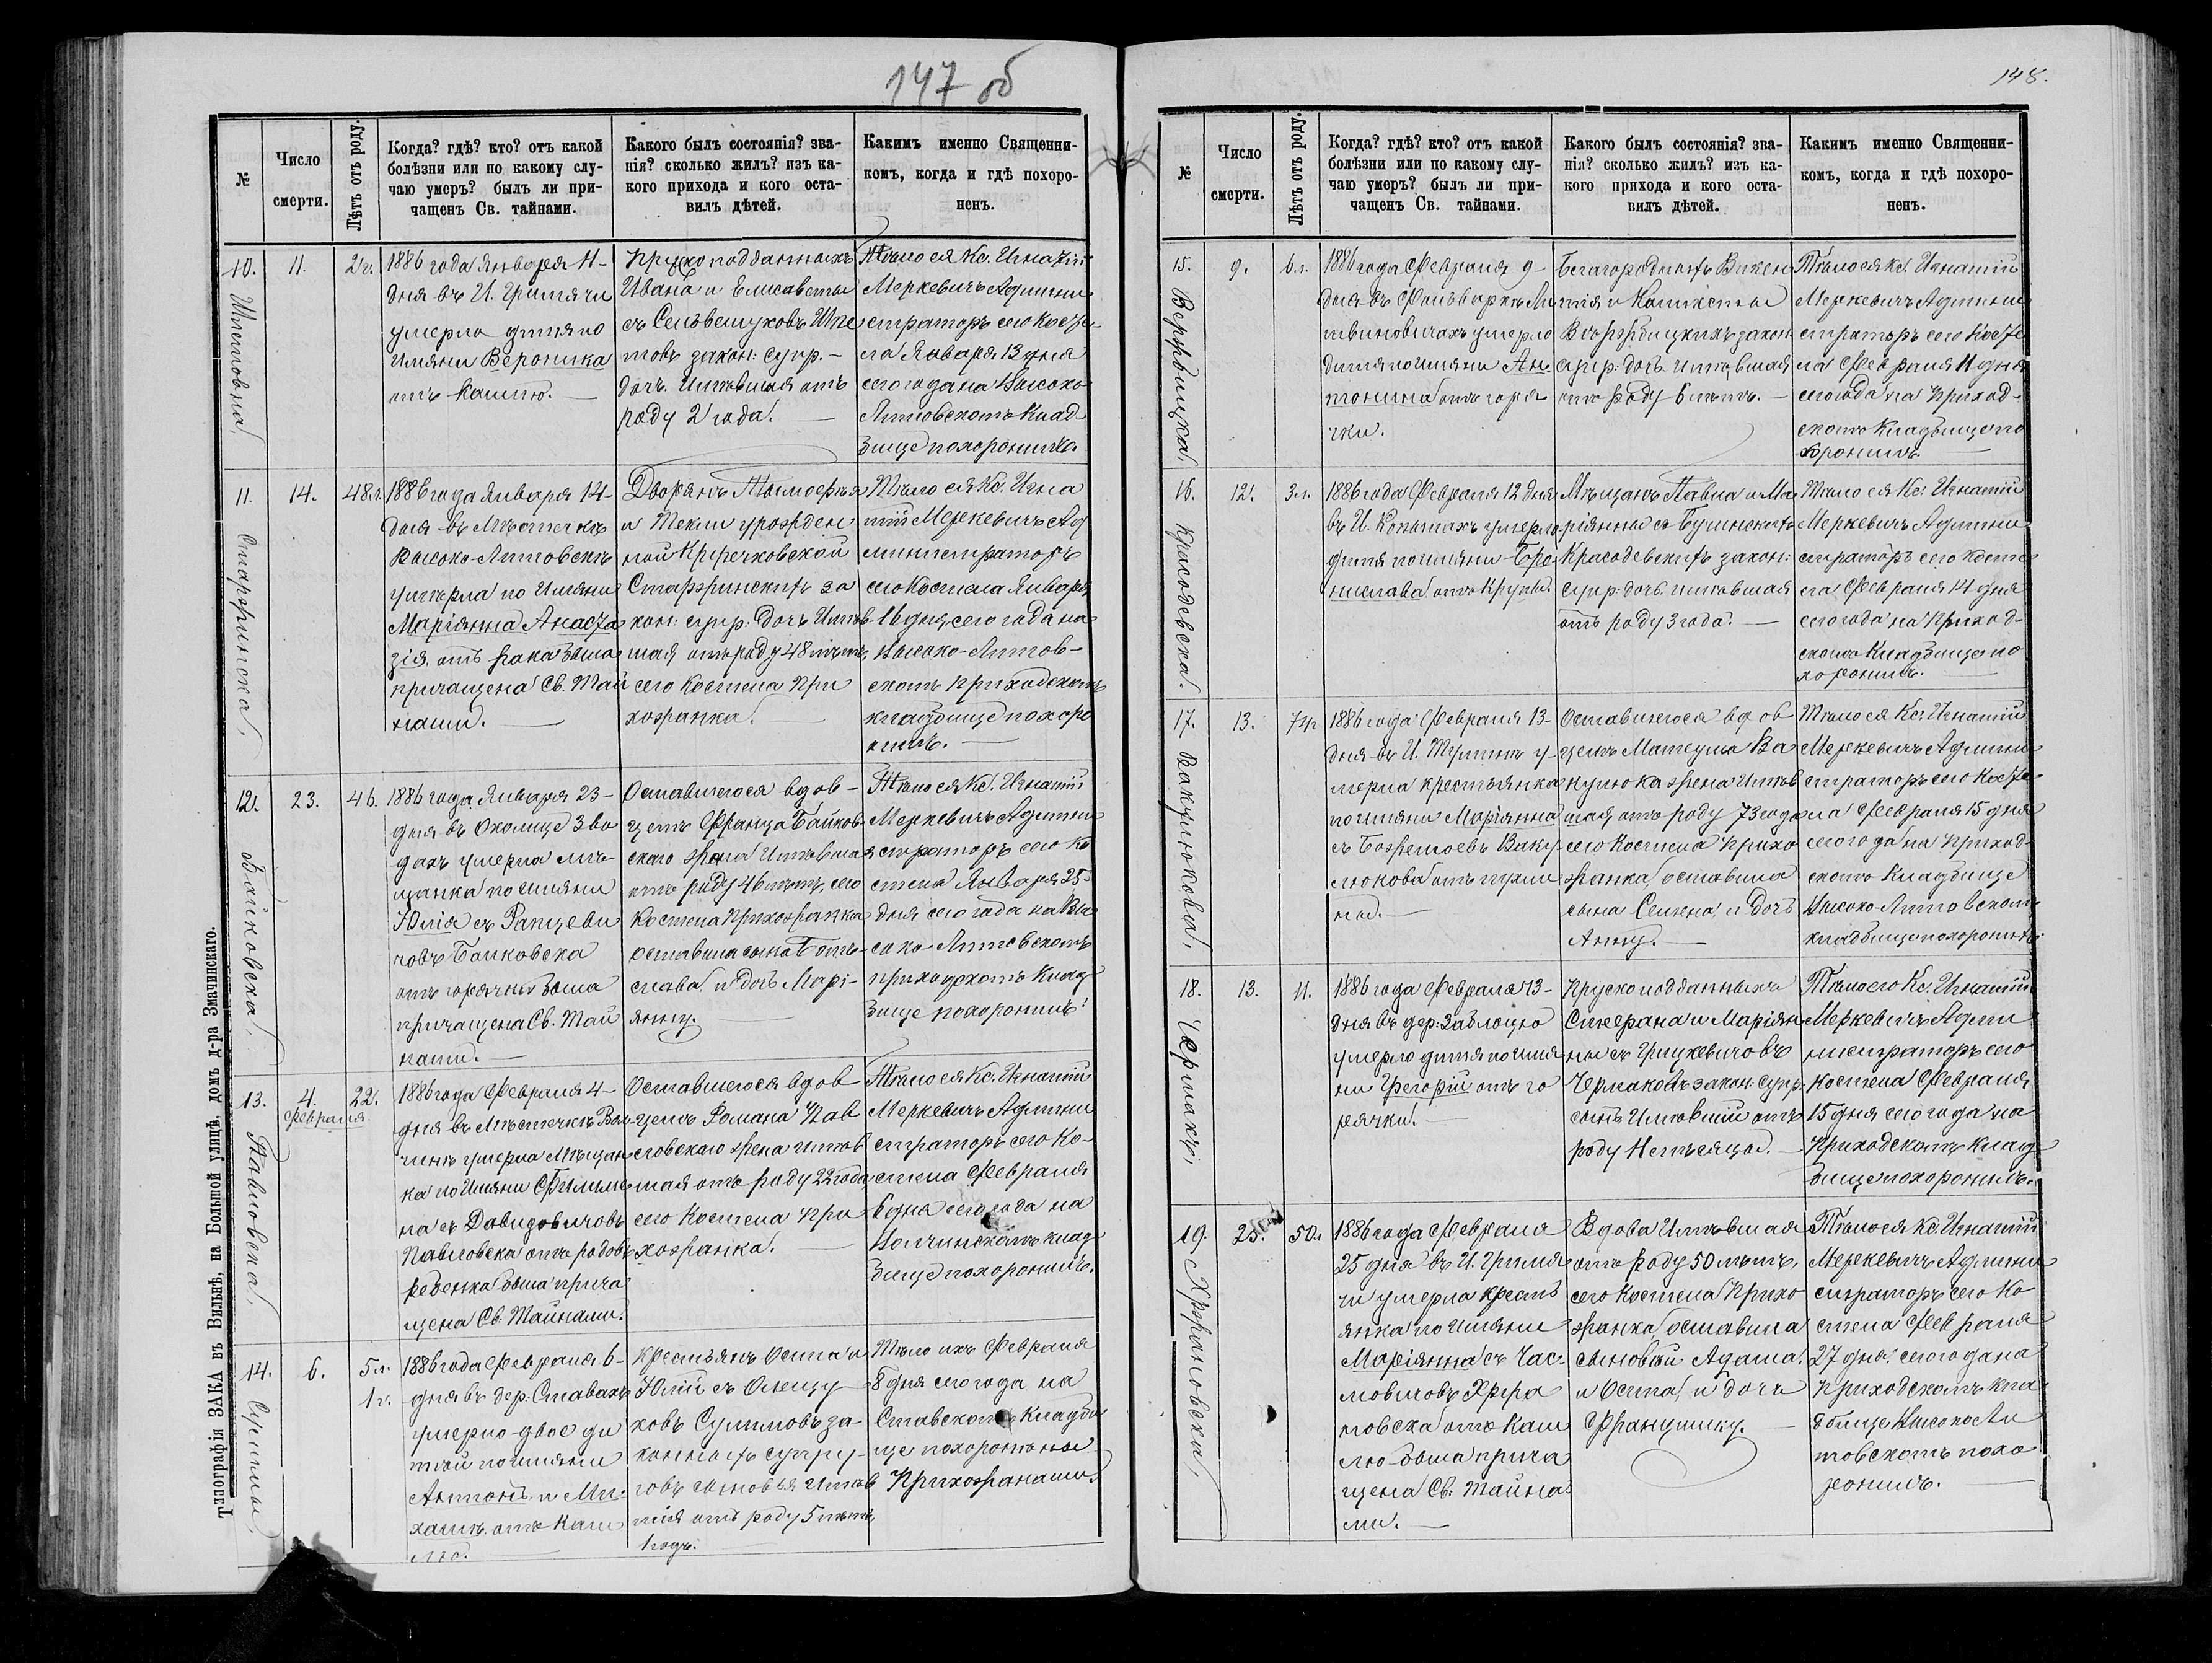 147 об
№
Число
смерти.
Лѣтъ отъ роду.
Когда? гдѣ? кто? отъ какой
болѣзни или по какому слу-
чаю умеръ? былъ ли при-
чащенъ Св. тайнами.
Какого былъ состоянія? зва-
нія? сколько жилъ? изъ ка-
кого прихода и кого оста-
вилъ дѣтей.
Какимъ именно Священни-
комъ, когда и гдѣ похоро-
ненъ.
10.
11.
2 г.
1886 года Января 11-
дня въ И.
умерло дитя по
имяни Вероника
отъ кашлю.
Пруско подданныхъ
Ивана и Елисаветы
закон: супр.-
дочь имѣвшая отъ
роду 2 года.
Тѣло ея Кс. Игнатій
Меркевичъ Админи
стрaторъ сего косте-
ла Января 13 дня
сего года на Высоко-
Литовскомъ Клад
бище похоронилъ.
11.
Старжинска,
14.
48 л.
1886 года Января 14-
дня въ Мѣстечкѣ
Высоко-Литовскѣ
умерла по имяни
Маріянна Анаста
зія отъ рака была
причащена Св. Тай
нами.
Дворянъ Тимофея
и Текли урожден
ной
Старжинскихъ за
кон: супр: дочь имѣв-
шая отъ роду 48 лѣтъ,
сего костела При
хожанка.
Тѣло ея Кс. Игна
тій Меркевичъ Ад
министраторъ
сего Костела Января
16 дня сего года на
Высоко-Литов-
скомъ приходскомъ
кладбище похоро
нилъ.
12.
Байковска,
23.
46.
1886 года Января 23-
дня въ Околице Зво
дахъ умерла мѣ-
щанка по имяни
Юлія съ Рапцеви
човъ Байковска
отъ горячки была
причащена Св. Тай
нами.
Оставшегося вдов-
цемъ Франца Байков-
скаго жена имѣвшая
отъ роду 46 лѣтъ, сего
Костела прихожанка
оставила сына Боле-
слава и дочь Марі-
янну.
Тѣло ея Кс. Игнатій
Меркевичъ Админи
стрaторъ сего Ко
стела Января 25-
дня сего года на Вы
соко-Литовскомъ
приходскомъ Клад
бище похоронилъ.
13.
Павловска,
4.
Февраля.
22.
1886 года Февраля 4-
дня въ Мѣстечкѣ Вол-
чинѣ умерла мѣщан
ка по имяни Филиме
на съ Давидовичовъ
Павловска отъ родовъ
ребенка была прича
щена Св. Тайнами.
Оставшегося вдов
цемъ Романа Пав
ловскаго жена имѣв
шая отъ роду 22 года
сего Костела при
хожанка.
Тѣло ея Кс. Игнатій
Меркевичъ Админи
стрaторъ сего Ко-
стела Февраля
6 дня сего года на
Волчинскомъ клад
бище похоронилъ.
14.
6.
5 л.
1 г.
1886 года Февраля 6-
дня въ дер. Ставахъ
умерло двое ди
тей по имяни
Антонъ и Ми-
халъ отъ каш
лю.
Крестьянъ Осипа и
Юлій съ
ховъ за-
конныхъ супру-
говъ сыновья имѣв
шія отъ роду 5 лѣтъ,
1 годъ.
Тѣло ихъ Февраля
8 дня сего года на
Ставскомъ Кладби
ще похоронены
Прихожанами.
Типографія ЗАКА въ Вильнѣ, на Большой улицѣ, домъ д-ра Змачинскаго.
148.
№
Число
смерти.
Лѣтъ отъ роду.
Когда? гдѣ? кто? отъ какой
болѣзни или по какому слу-
чаю умеръ? былъ ли при-
чащенъ Св. тайнами.
Какого былъ состоянія? зва-
нія? сколько жилъ? изъ ка-
кого прихода и кого оста-
вилъ дѣтей.
Какимъ именно Священни-
комъ, когда и гдѣ похоро-
ненъ.
15.
Вержбицка,
9.
6 л.
1886 года Февраля 9-
дня въ Фольваркѣ Ли
твиновичахъ умерло
дитя по имяни Ан-
тонина отъ горя
чки.
Благородныхъ Викен
тія и
Вержбицкихъ закон
супр: дочь имѣвшая
отъ роду 6 лѣтъ.
Тѣло ея Кс. Игнатій
Меркевичъ Админи
стрaторъ сего Косте
ла Февраля 11 дня
сего года на Приход-
скомъ Кладбище по
хоронилъ.
16.
Красодевска.
12.
3 л.
1886 года Февраля 12 дня
въ И. Копылахъ умерло
дитя по имяни Бро
нислава отъ крупы.
Мѣщанъ Павла и Ма
ріянны съ
Красодевскихъ закон:
супр: дочь имѣвшая
отъ роду 3 года.
Тѣло ея Кс. Игнатій
Меркевичъ Админи
стрaторъ сего Косте
ла Февраля 14 дня
сего года на Приход-
скомъ Кладбище по
хоронилъ.
17.
Вакулюкова,
13.
73 г.
1886 года Февраля 13-
дня въ И. у-
мерла крестьянка
по имяни Маріянна
съ Ваку
люкова отъ пухли
ны.
Оставшегося вдов
цемъ Матеуша Ва
кулюка жена имѣв
шая отъ роду 73 года
сего Костела прихо
жанка, оставила
сына Семена и дочь
Анну.
Тѣло ея Кс. Игнатій
Меркевичъ Админи
стрaторъ сего Косте-
ла Февраля 15 дня
сего года на приход-
скомъ Кладбище
Высоко-Литовскомъ
кладбище похоронилъ.
18.
Чермакъ,
13.
11.
1886 года Февраля 13-
дня въ дер: Заблоцю
умерло дитя по имя
ни Грегорій отъ го
рячки.
Пруско подданныхъ
Стефана и Маріян
ны съ Грицкевичовъ
Чермаковъ закон: супр:
сынъ имѣвшій отъ
роду 11 мѣсяцовъ.
Тѣло его Кс. Игнатій
Меркевичъ Адми
нистраторъ сего
костела Февраля
15 дня сего года на
Приходскомъ клад
бище похоронилъ.
19.
25.
50 л.
1886 года Февраля
25 дня въ И.
умерла кресть
янка по имяни
Маріянна съ Час-
ловичовъ
отъ каш
лю была прича
щена Св: Тайна
ми.
Вдова имѣвшая
отъ роду 50 лѣтъ,
сего Костела Прихо
жанка, оставила
сыновей Адама
и Осипа, и дочь
Францишку.
Тѣло ея Кс. Игнатій
Меркевичъ Админи
стрaторъ сего Ко
стела Февраля
27 дня сего года на
Приходскомъ кла
дбище Высоко Ли
товскомъ похо
ронилъ.